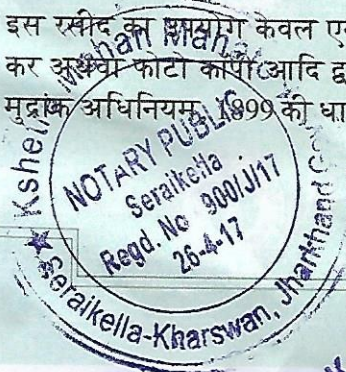 इस रसीद का उपयोग केवल ए
कर अथवा फोटो कॉपी आदि द्व
मुद्रांक अधिनियम, 1899 की धा
Kshet Mohan Maha
NOTARY PUBLIC
Seraikella
Regd. No 900/J/17
26-4-17
★ Seraikella-Kharswan, Jharkhand